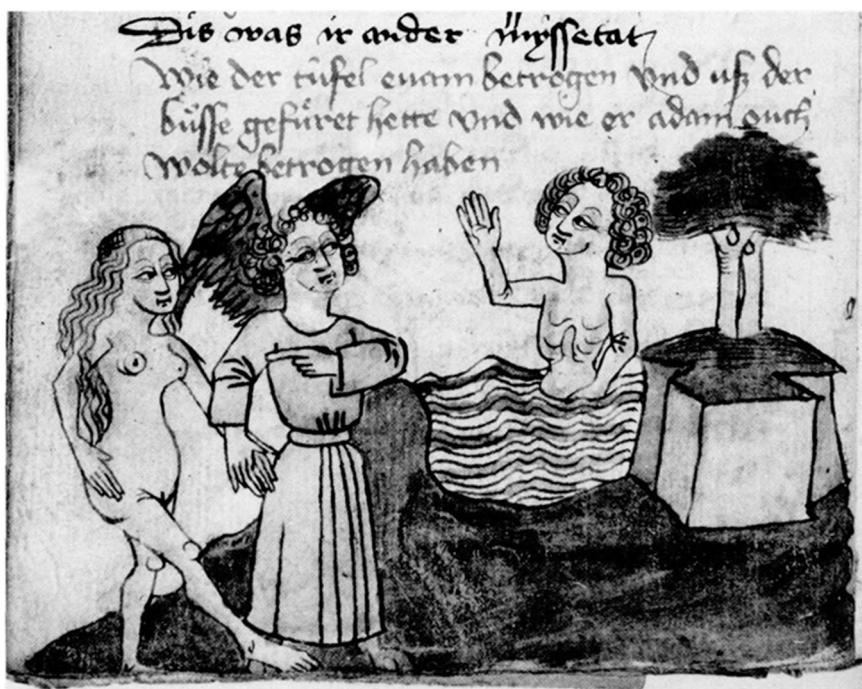 Dis was ir ander myssetat
wie der túfel euam betrogen vnd uß der
bůsse gefůret hette vnd wie er adam ouch
wolte betrogen haben